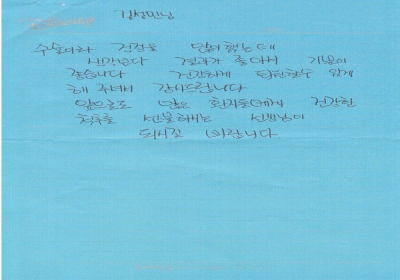 김성민님
수술이라 걱정을 많이 했는데
생각보다 결과가 좋아서 기분이
좋습니다 건강하게 퇴원할수 있게
해 주셔서 감사드립니다
앞으로도 많은 환자들에게 건강한
척추를 선물하시는 선생님이
되시길 바랍니다.